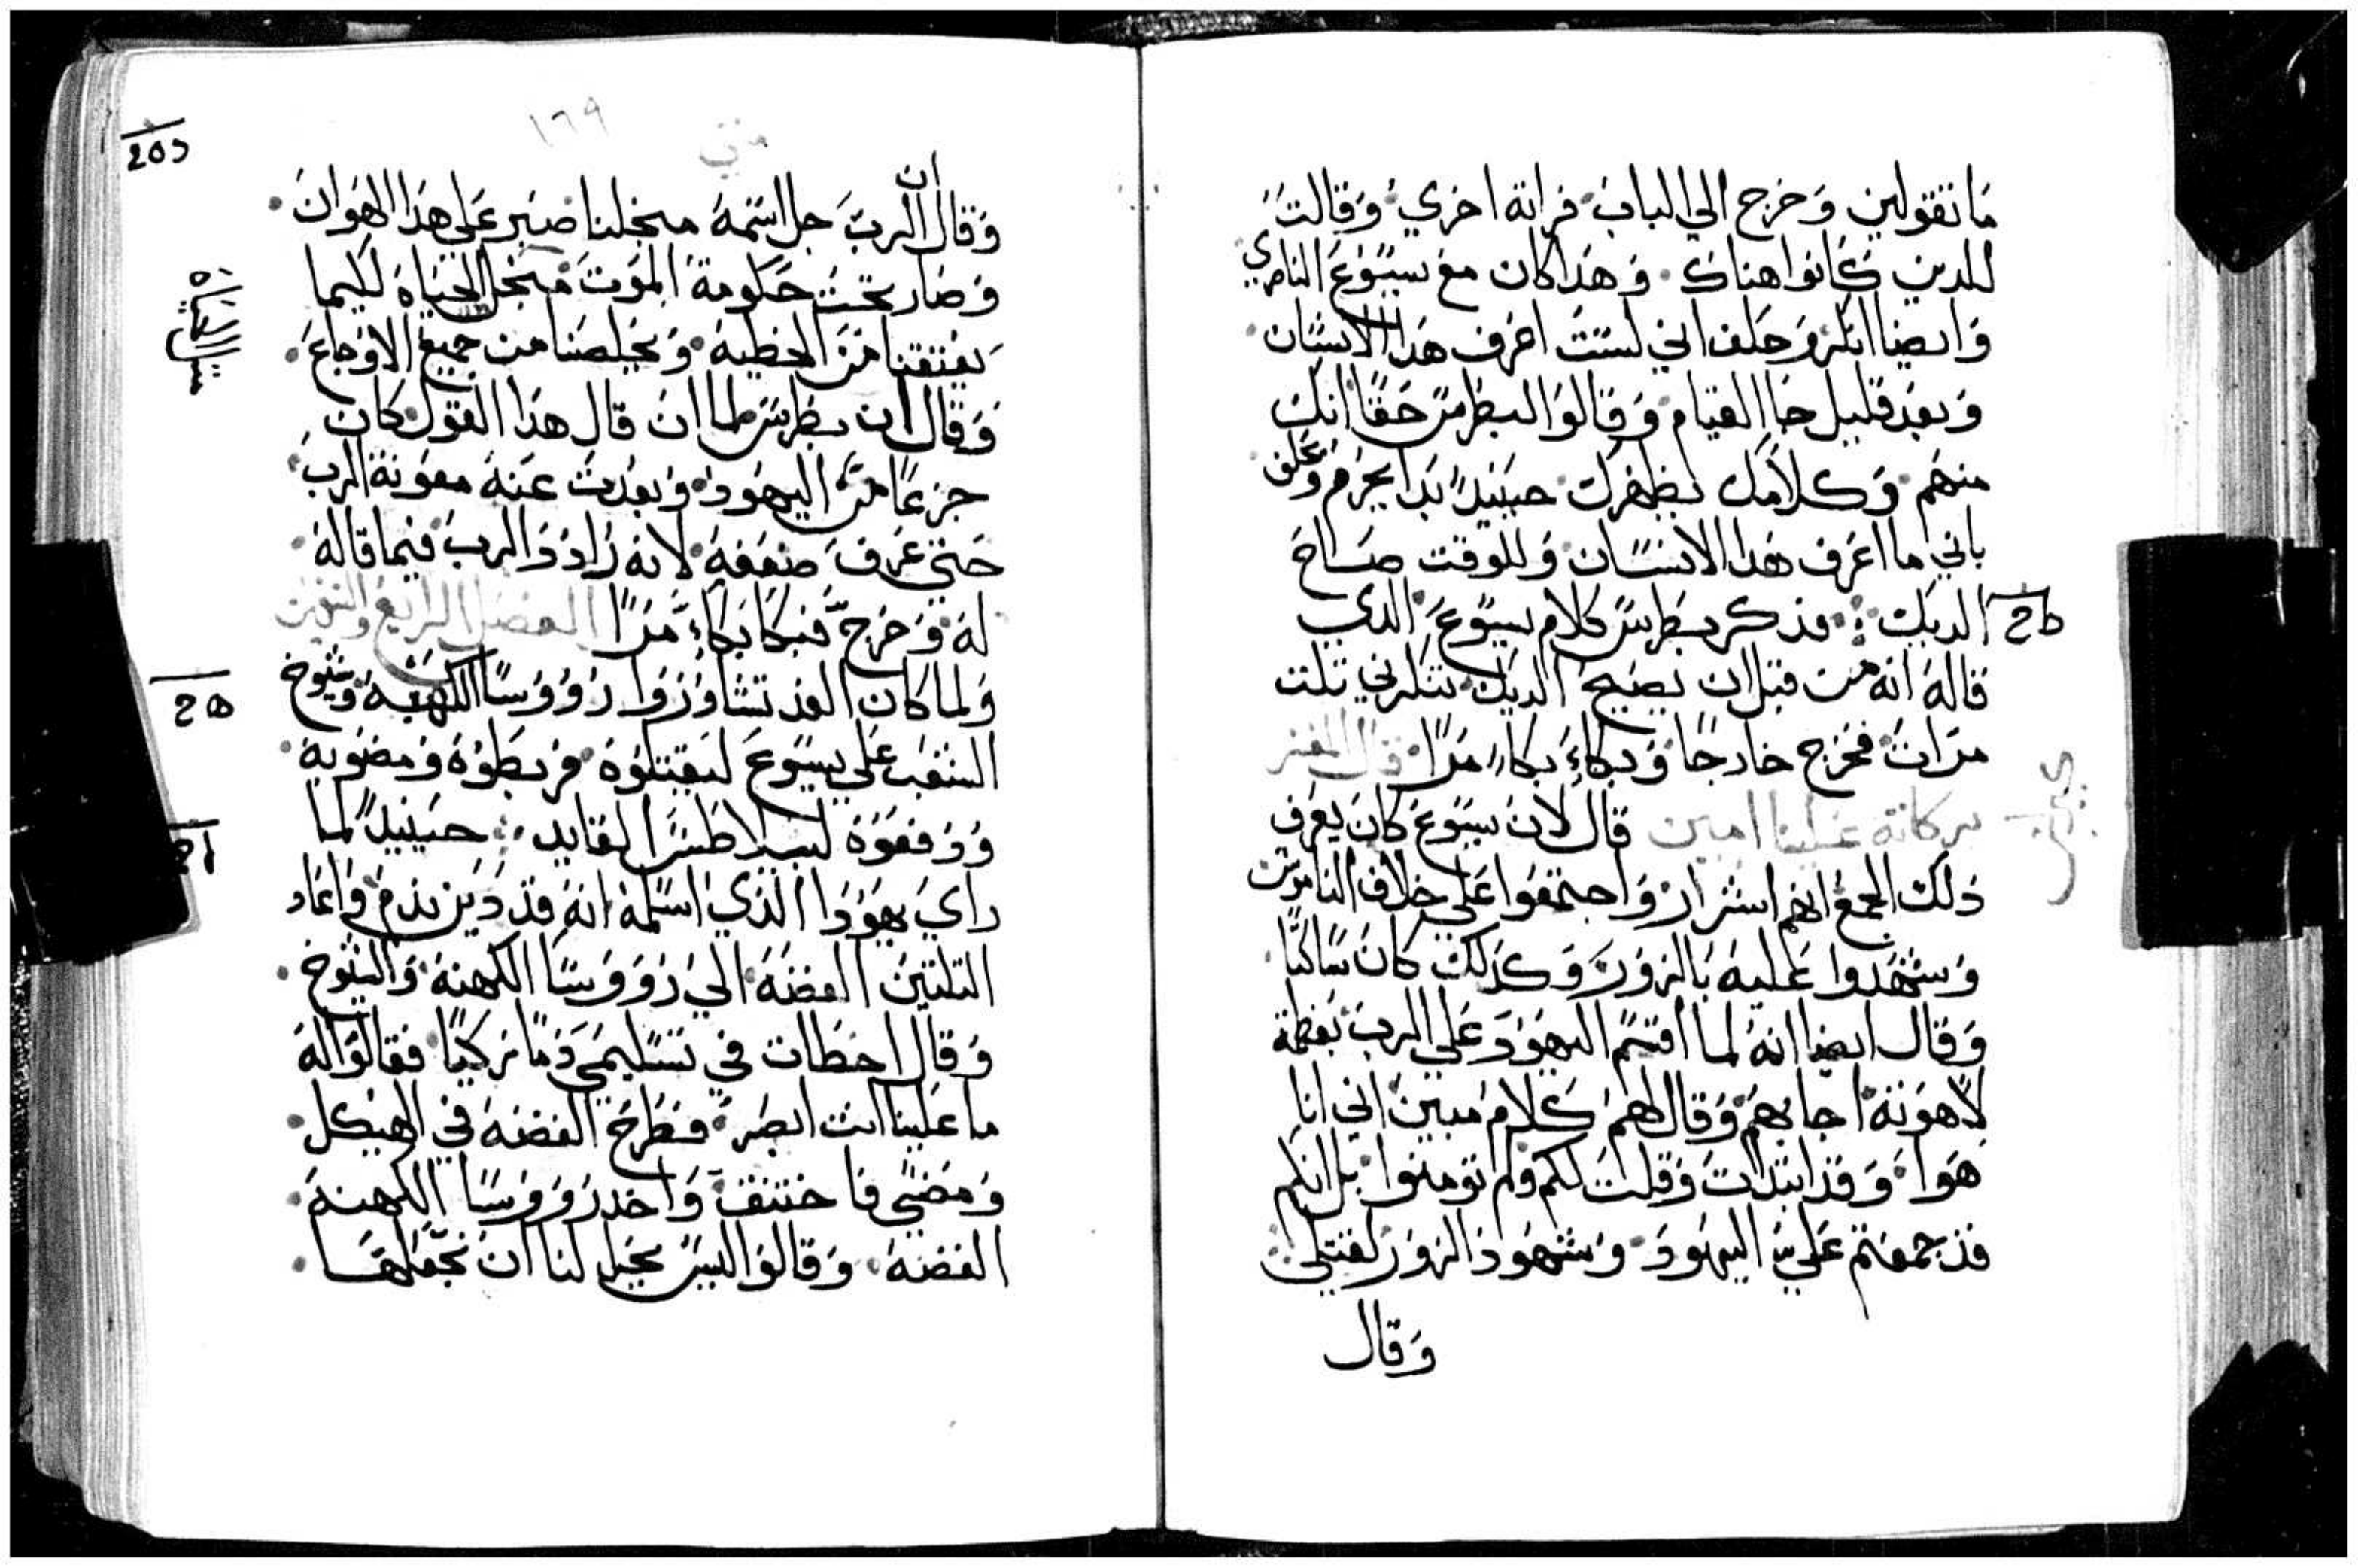 ما تقولين وخرج الي الباب فراته اخري وقالت
للدين كانوا هناك وهذا كان مع يسوع الناصري
وايضا انكر وحلف اني لست اعرف هذا الانسان
وبعد قليل جا القيام وقالوا لبطرس حقا انك
منهم وكلامك يظهرك حينيد بدا يحرم ويحلف
باني ما اعرف هدا الانسان وللوقت صاح
الديك فدكر بطرس كلام يسوع الدي
قاله انه من قبل ان يصيح الديك تنكرني تلت
مرات فخرج خارجا وبكاء بكاء مرا قال المفسر
بركاته علينا امين قال لان يسوع كان يعرف
دلك الجمع انهم اشرار واجتمعوا علي خلاف الناموس
وشهدوا عليه بالزور وكدلك كان ساكتا
وقال ايضا انه لما اقسم اليهود علي الرب بعظمة
لاهوته اجابهم وقال لهم كلام مبين اني انا
هوا وقد ابتدات وقلت لكم ولم تومنوا بل انكم
قد جمعتم علي اليهود وشهود الزور لقتلي
وقال
متي
١٦٩
وقال ان الرب جل اسمه من اجلنا صبر علي هذا الهوان
وصار تحت حكومة الموت من اجل الحياه لكيما
يعتقنا من الخطية ويخلصنا من جميع الاوجاع
وقال ان بطرس لما ان قال هذا القول كان
جزعا من اليهود وبعدت عنه معونة الرب
حتي عرف ضعفه لانه زاد الرب فيما قاله
له وخرج فبكا بكاء مرا الفصل الرابع والتسعين
ولما كان الغد تشاوروا رووسا الكهنة وشيوخ
الشعب علي يسوع ليقتلوه فربطوه ومضوا به
ودفعوه لبيلاطس القايد حينيد لما
راي يهودا الذي اسلمه انه قد دين ندم واعاد
التلتين الفضه الي رووسا الكهنة والشيوخ
وقال اخطات في تسليمي دما زكيا فقالوا له
ما علينا انت ابصر فطرح الفضه في الهيكل
ومضي فاختنق واخد رووسا الكهنة
الفضه وقالوا ليس يحل لنا ان نجعلها